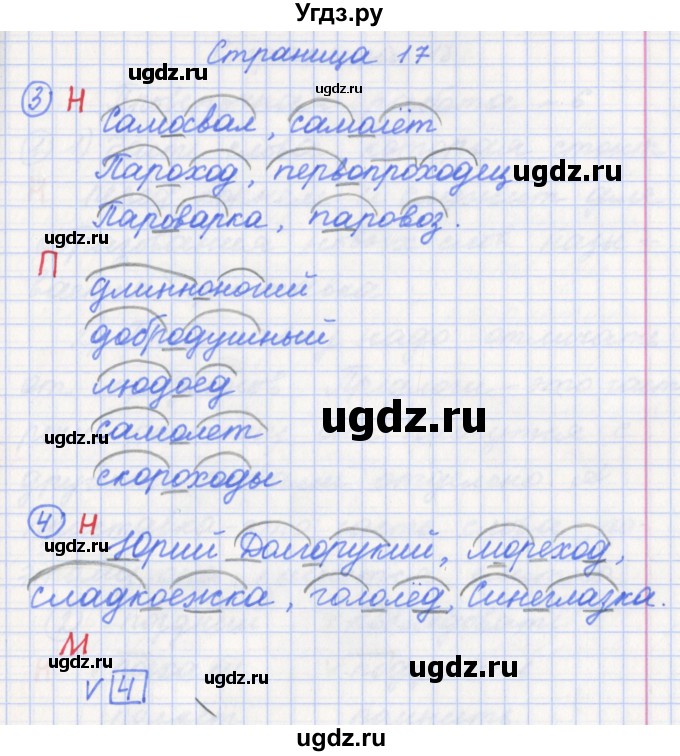 Угдз.ру
Страница 17
ugdz.ru ugdz.ru ugdz.ru
3 Н
Самосвал, самолёт
Пароход, первопроходец ugdz.ru
Пароварка, паровоз.
ugdz.ru
П
длинноногий
добродушный
людоед
ugdz.ru ugdz.ru
самолет
скороходы
4 Н
Юрий Долгорукий, мореход,
ugdz.ru
сладкоежка, гололёд, Синеглазка.
М
ugdz.ru ugdz.ru ugdz.ru
v 4
Угдз.ру